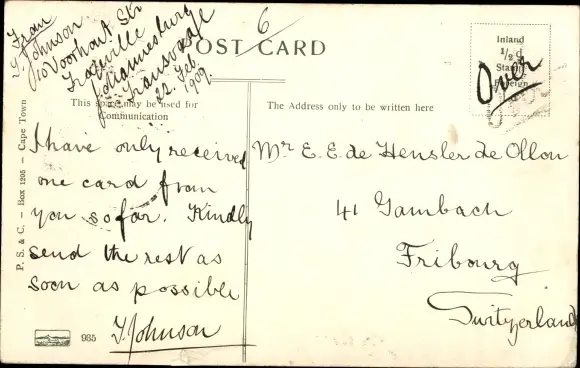 From
J. Johnson
10 Voorhout Str
Johannesburg
Transvaal
22. Feb.
1909.
6
POST CARD
Inland
1/2 d
Stamp
Foreign
Over
This space may be used for
Communication
The Address only to be written here
I have only received
one card from
you so far. Kindly
send the rest as
soon as possible
J. Johnson
Mr. E. E. de Hensler de Ollon
41 Gambach
Fribourg
Switzerland
P. S. & C. - Box 1205 - Cape Town
985